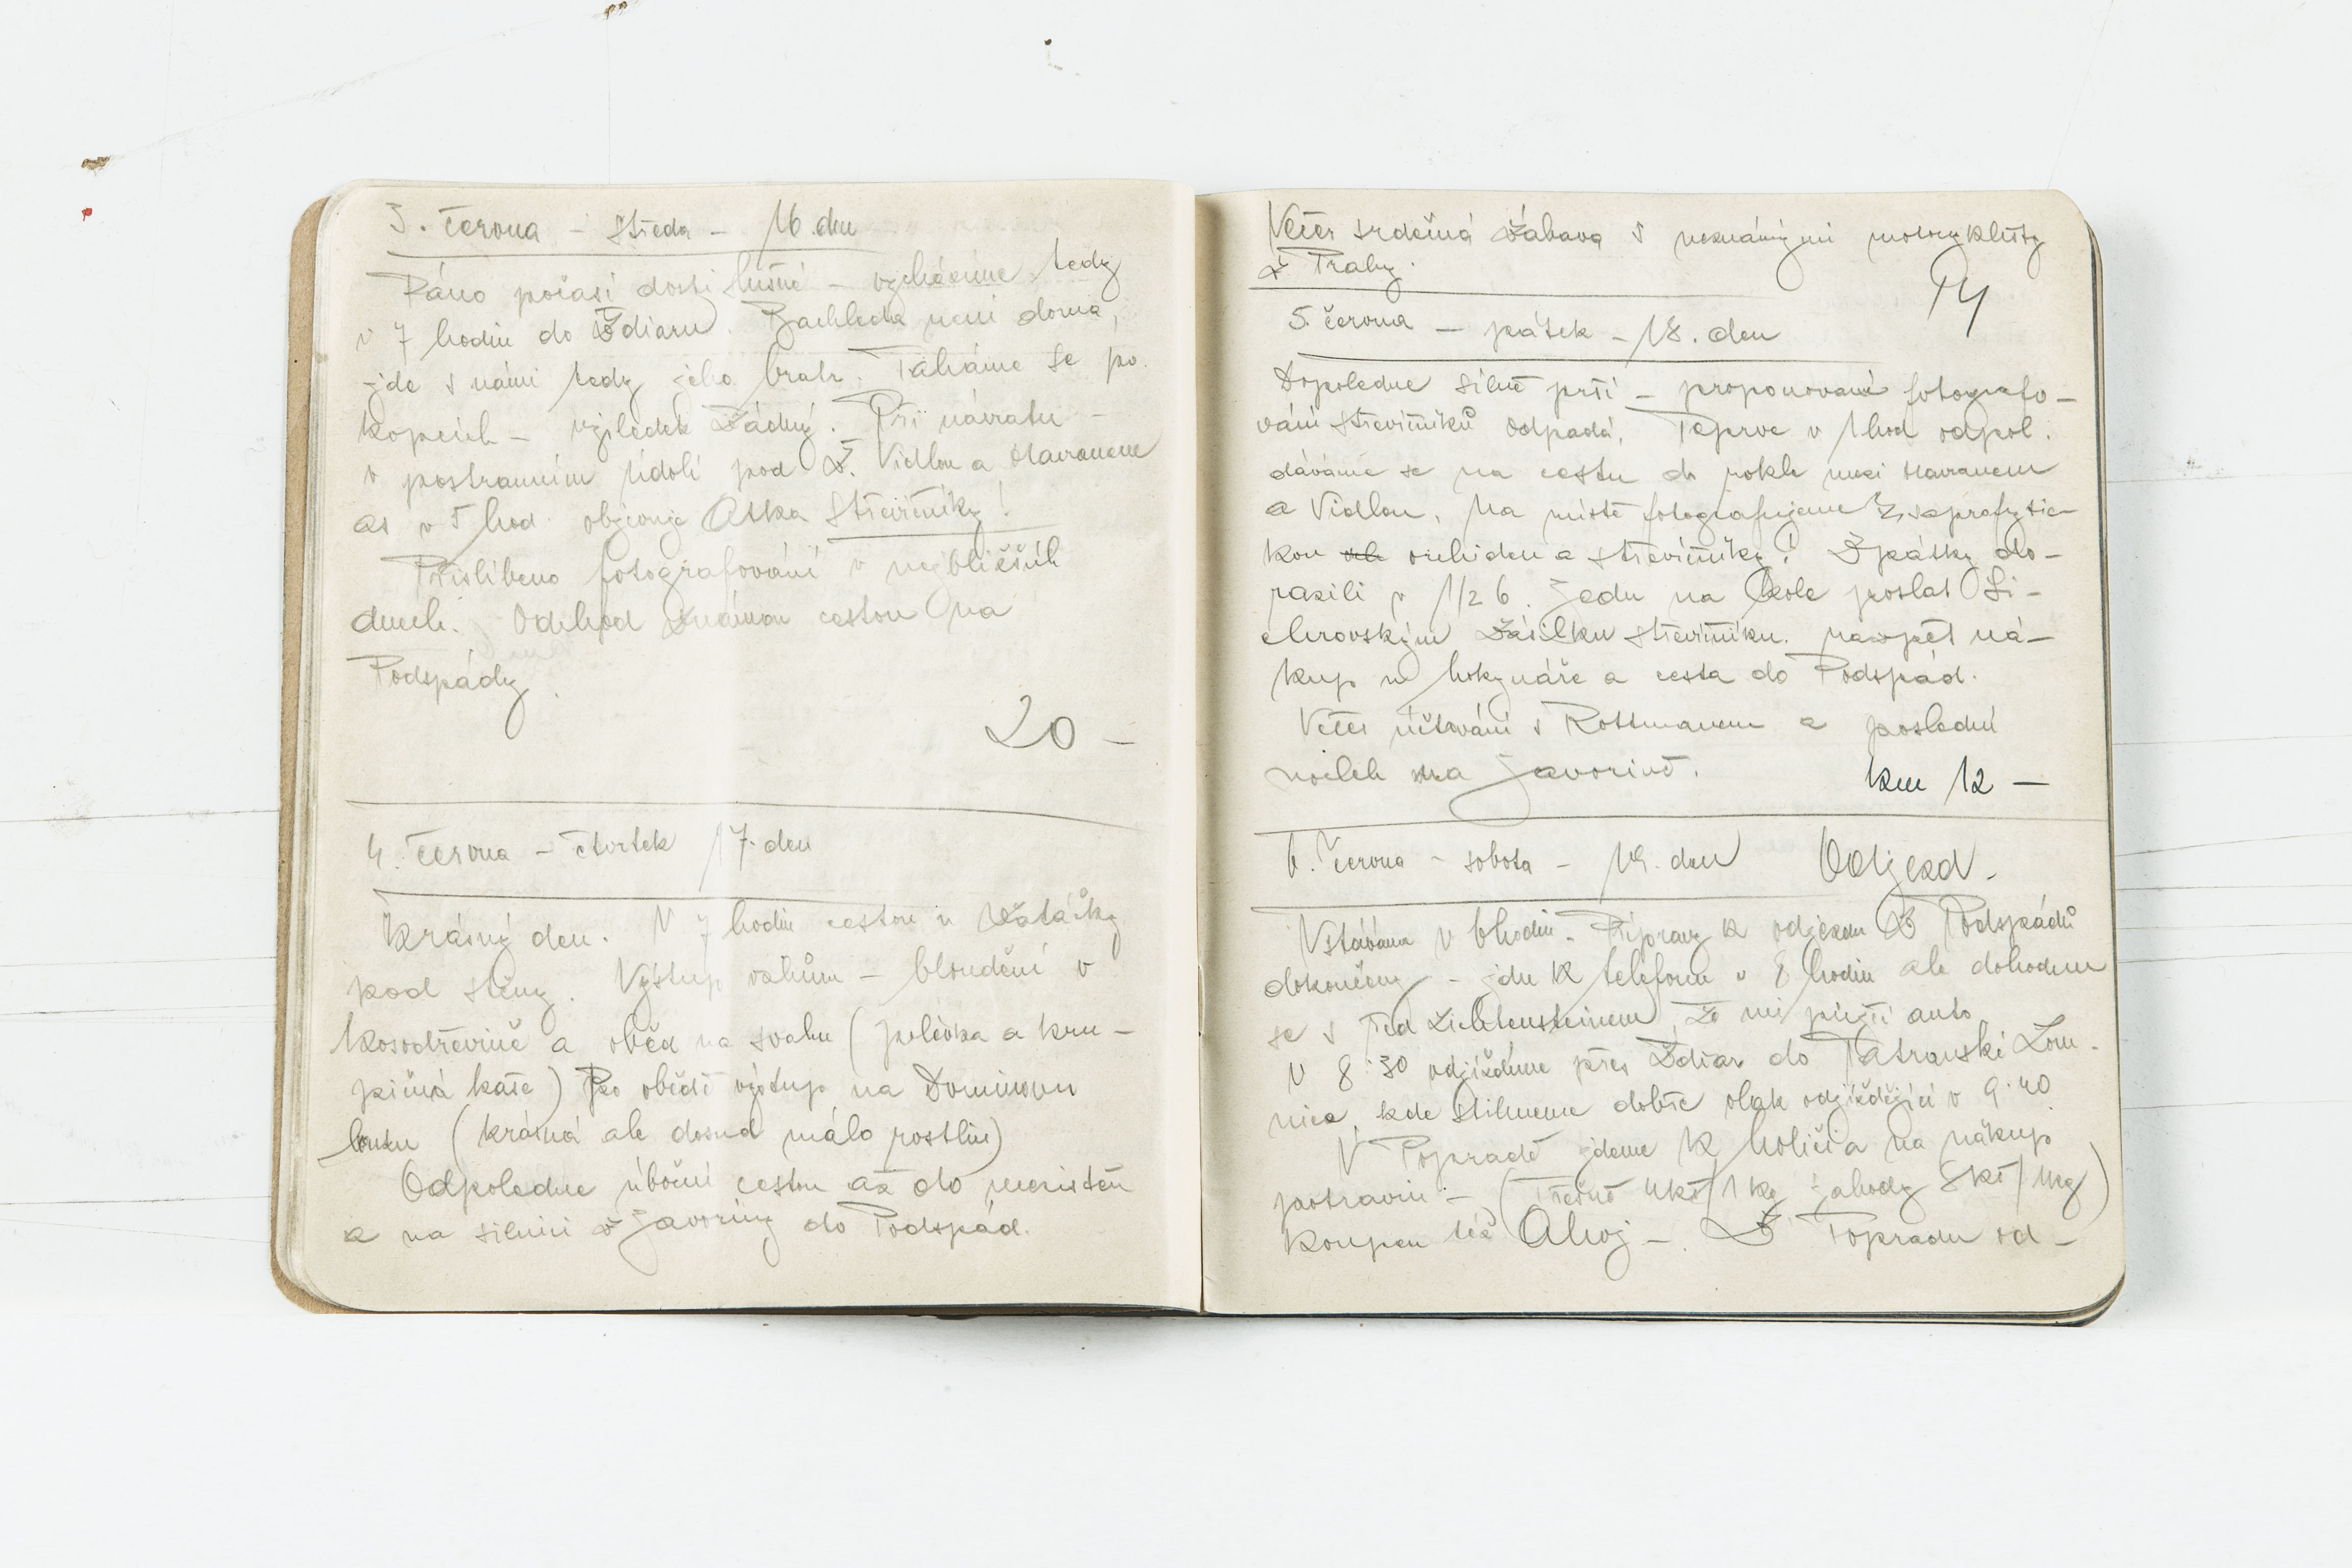 3. června – středa – 16. den
Ráno počasí dosti slušné – vycházíme tedy
v 7 hodin do Ždiaru. Bachleda není doma,
jde s námi tedy jeho bratr. Taháme se po
kopcích – výsledek žádný. Při návratu –
v postranním údolí pod Ž. Vidlou a Havranem
as v 5 hod. objevuje Aska Střevičníky!
Přislíbeno fotografování v nejbližších
dnech. Odchod známou cestou na
Podspády.
20 –
4. června – čtvrtek 17. den
Krásný den. V 7 hodin cestou u
pod stěny. Výstup vzhůru – bloudění v
kosodřevině a oběd na svahu (polévka a kru–
pičná kaše) Po obědě výstup na
louku (krásná ale dosud málo rostlin)
Odpoledne úboční cestou až do
a na silnici z Javoriny do Podspád.
Večer srdečná zábava s neznámými motocyklisty
z Prahy.
14
5. června – pátek – 18. den
Dopoledne silně prší – proponované fotografo–
vání střevičníků odpadá. Teprve v 1 hod odpol.
dáváme se na cestu do rokle mezi Havranem
a Vidlou. Na místě fotografujeme saprofytic–
kou orchideu a střevičníky! Zpátky do–
razili v 1/2 6. Jedu na kole poslat Si–
chrovským zásilku střevičníku. naspět ná–
kup u hokynáře a cesta do Podspád.
Večer účtování s Rottmanem a poslední
nocleh na Javorině.
km 12 –
6. června – sobota – 19. den Odjezd –
Vstávám v 6 hodin. Přípravy k odjezdu z Podspádů
dokončeny – jdu k telefonu v 8 hodin ale dohodnu
se s Lichtensteinem, že mi půjčí auto
V 8.30 odjíždíme přes Ždiar do Tatranské Lom–
nice, kde stihneme dobře vlak odjíždějící v 9.40
V Popradě jdeme k holiči a na nákup
potravin – (třešně 4kč/1kg jahody 8kč/1kg)
koupen též Ahoj – Z Popradu od–